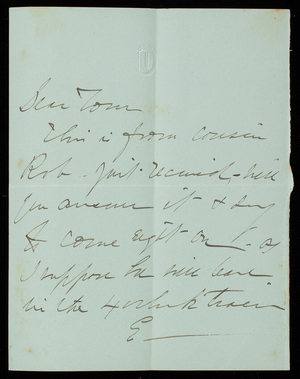 Dear Tom
This is from cousin
Rob - just received, will
you answer it & say
to come right on
I suppose he will leave
in the 4 o'clock train
E